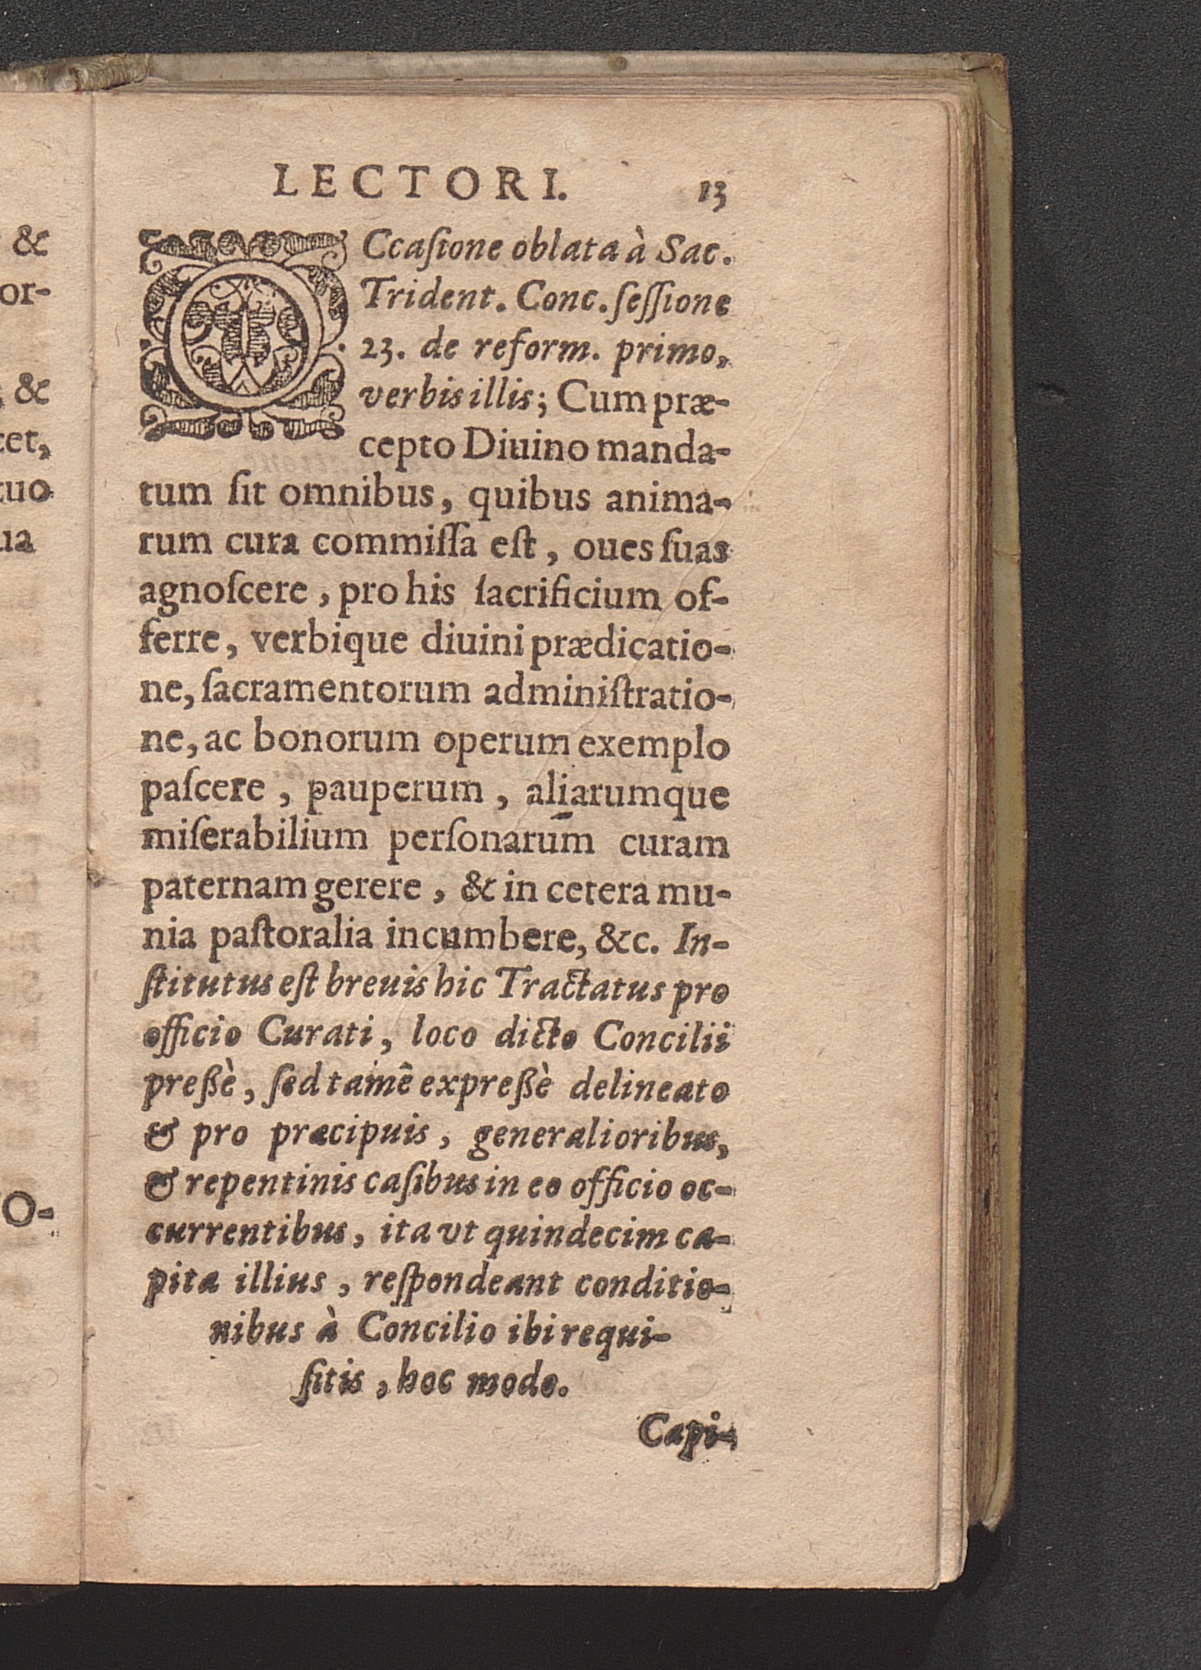 LECTORI. 13
OCcaſione oblata à Sac.
Trident. Conc. ſeſſione
23. de reform. primo,
verbis illis; Cum præ-
cepto Diuino manda-
tum ſit omnibus, quibus anima-
rum cura commiſſa eſt, oues ſuas
agnoſcere, pro his ſacrificium of-
ferre, verbique diuini prædicatio-
ne, ſacramentorum adminiſtratio-
ne, ac bonorum operum exemplo
paſcere, pauperum, aliarumque
miſerabilium perſonarum curam
paternam gerere, & in cetera mu-
nia paſtoralia incumbere, &c. In-
ſtitutus eſt breuis hic Tractatus pro
officio Curati, loco dicto Concilii
preßè, ſed tamē expreßè delineato
& pro præcipuis, generalioribus,
& repentinis caſibus in eo officio oc-
currentibus, ita vt quindecim ca-
pita illius, reſpondeant conditio-
nibus à Concilio ibi requi-
ſitis, hoc modo.
Capi-
&
or-
; &
cet,
tuo
ua
O-